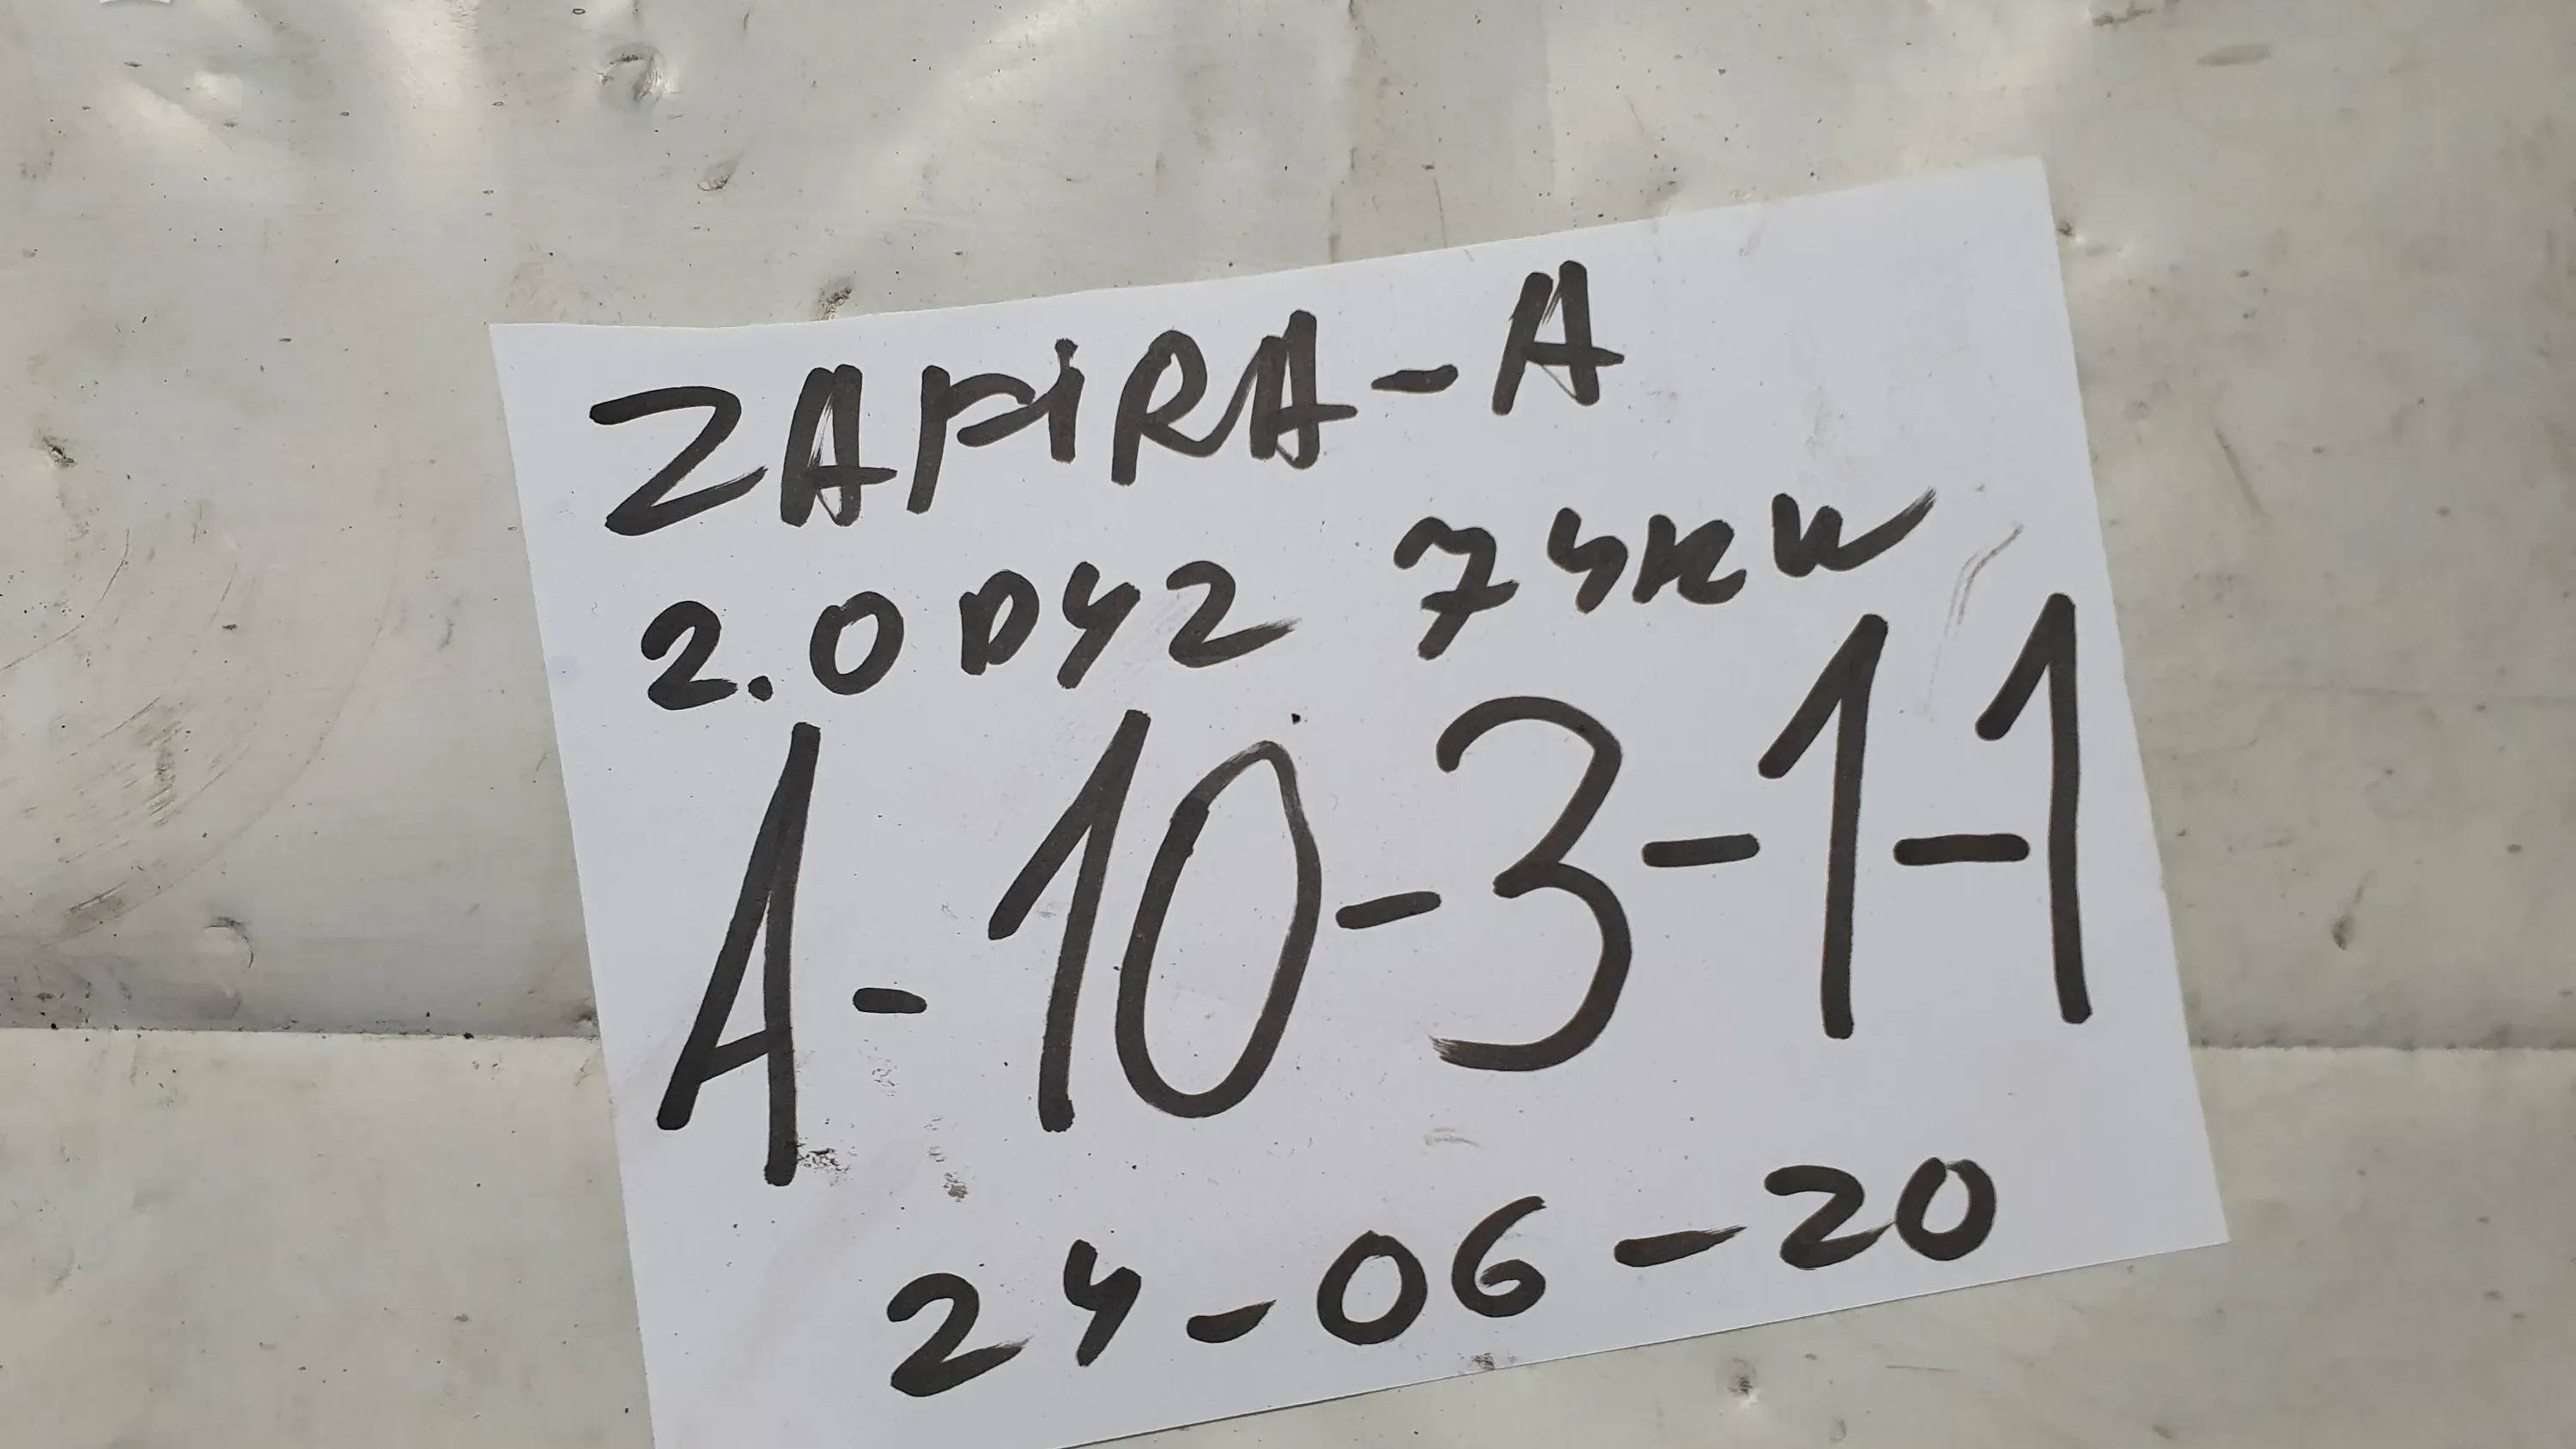 ZAFIRA-A
2.0 DYZ 74KW
A-10-3-1-1
24-06-20